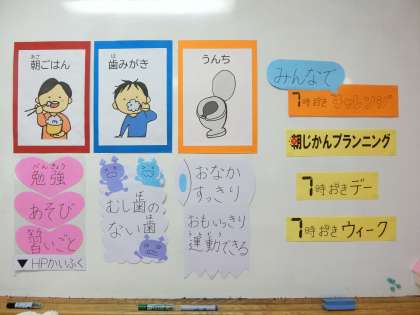 あさ
朝ごはん
は
歯みがき
うんち
べんきょう
勉強
あそび
習いごと
▼HPかいふく
むし歯の
ない歯
おなか
すっきり
おもいっきり
運動できる
みんなで
7時おきチャレンジ
朝じかんプランニング
7時おきデー
7時おきウィーク